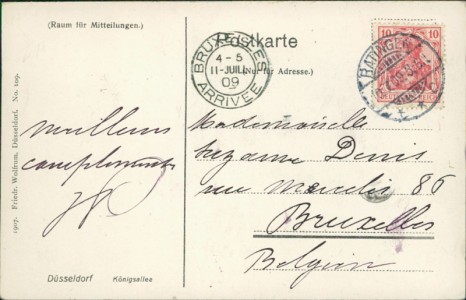 (Raum für Mitteilungen.)
Postkarte
(Nur für Adresse.)
BRUXELLES
4-5
11-JUIL
09
ARRIVÉE
RATINGEN
10 10
meilleurs
compliments
Mademoiselle
Suzanne Denis
rue 86
Bruxelles
Belgien
Düsseldorf Königsallee
1907. Friedr. Wolfrum, Düsseldorf. No. 109.